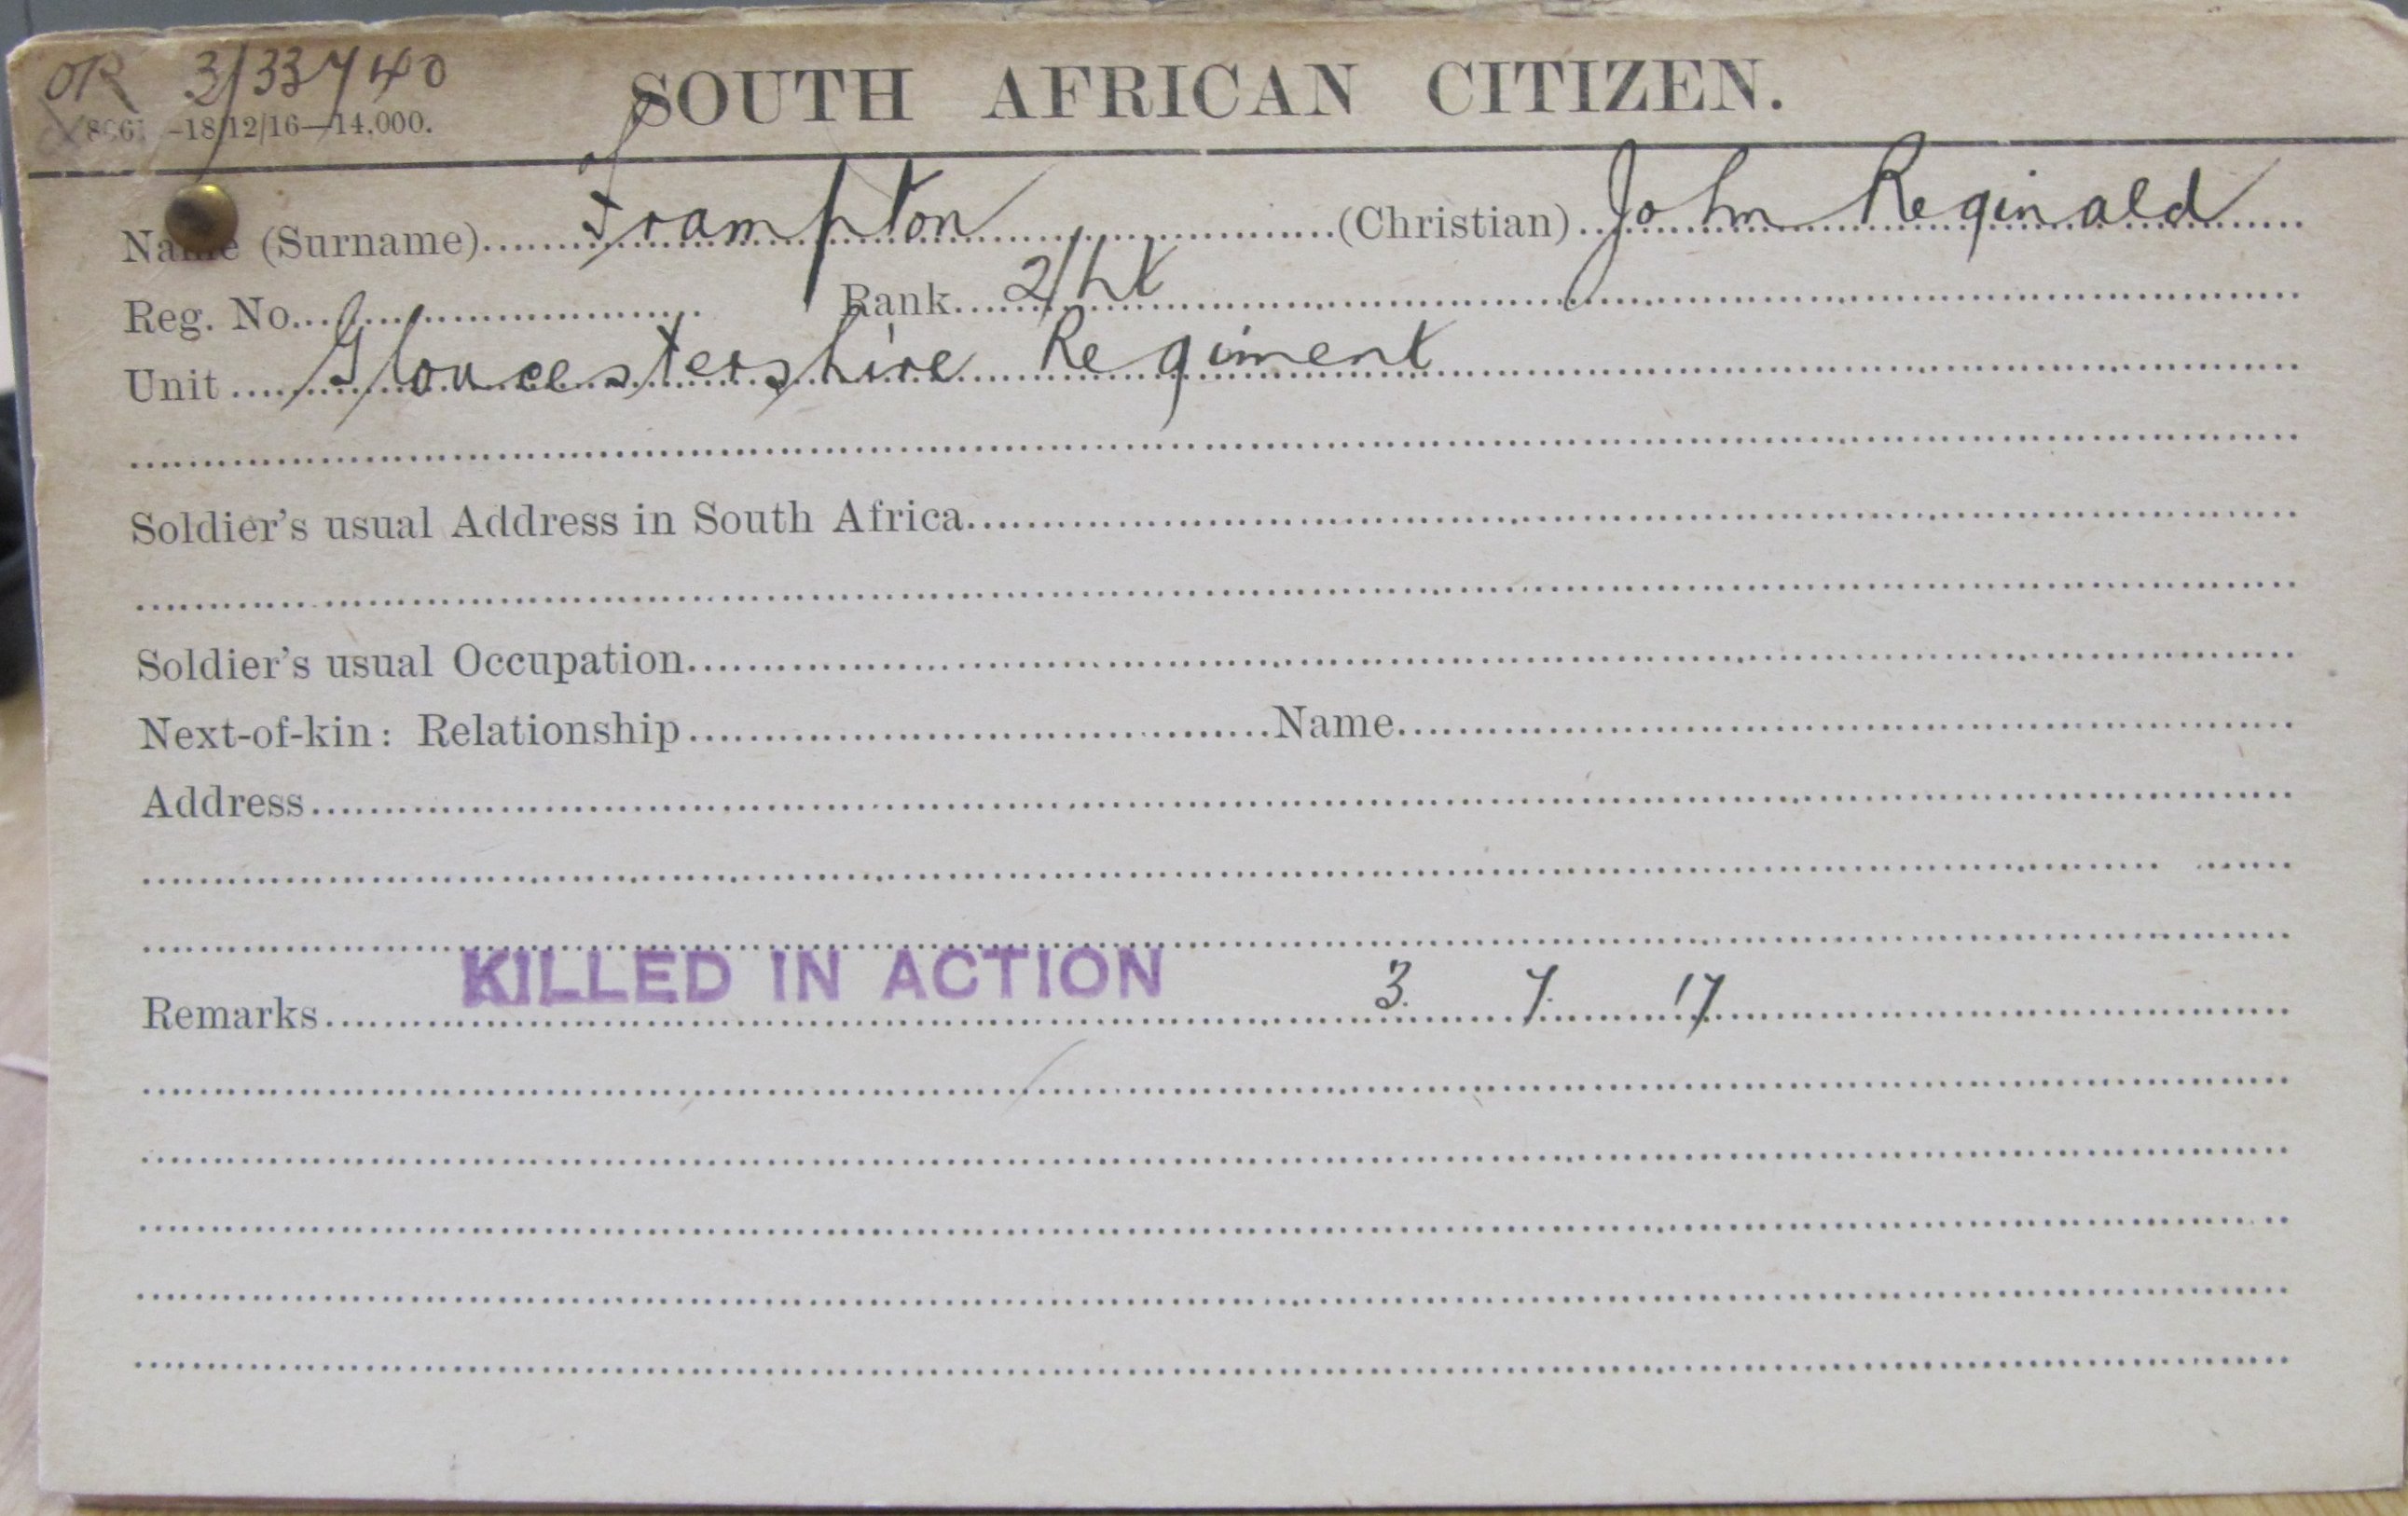 OR 3/33740
SOUTH AFRICAN CITIZEN.
—18/12/16—14,000.
Name (Surname) Frampton (Christian) John Reginald
Reg. No. Rank 2/Lt
Unit Gloucestershire Regiment
Soldier's usual Address in South Africa
Soldier's usual Occupation
Next-of-kin: Relationship Name
Address
KILLED IN ACTION
Remarks 3. 7. 17